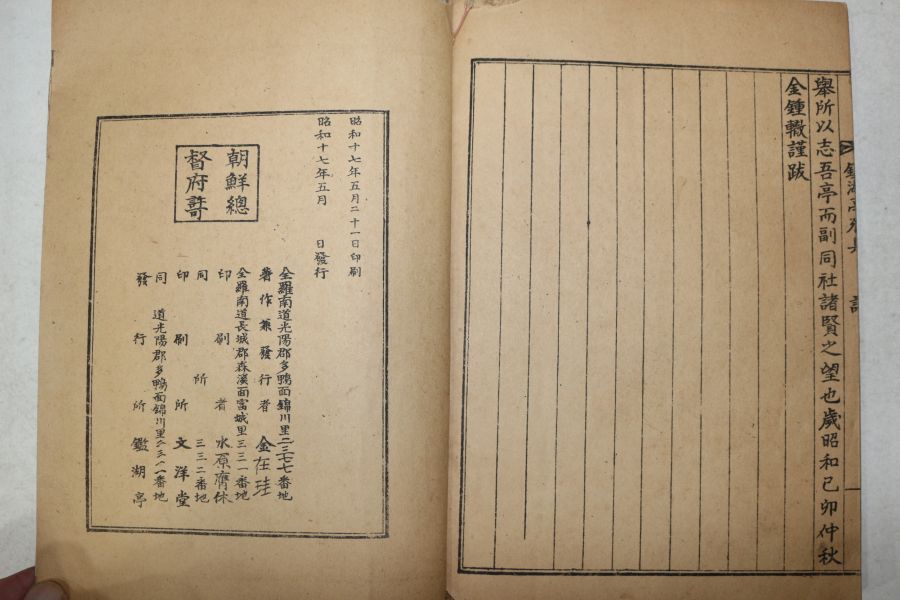 舉所以志吾亭而副同社諸賢之望也歲昭和己卯仲秋
金鍾㪅謹跋
昭和十七年五月二十一日印刷
昭和十七年五月 日發行
朝鮮總
督府許可
全羅南道光陽郡多鴨面錦川里二三七七番地
著作兼發行者 金在珪
全羅南道長城郡森溪面富城里三三一番地
印刷者 水原膺休
同所 三三二番地
印刷所 文洋堂
同道光陽郡多鴨面錦川里
發行所 鑑湖亭